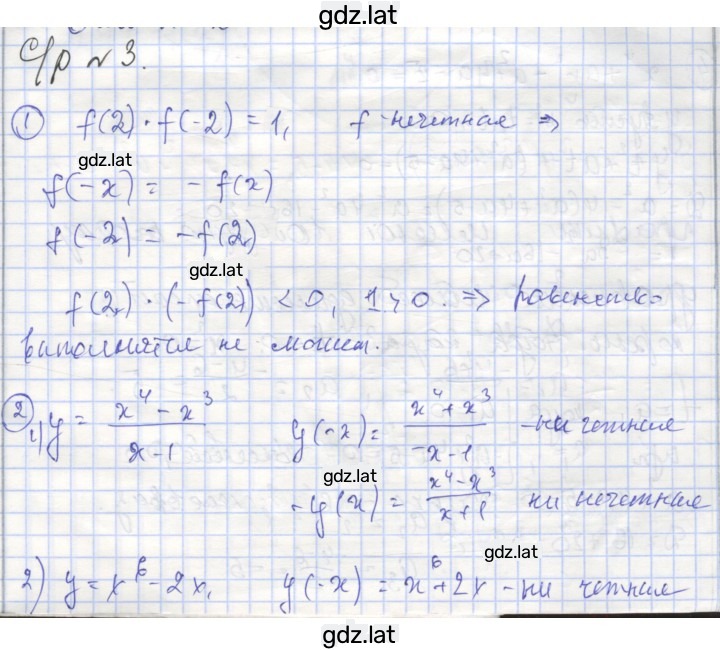 gdz.lat
С/р № 3.
① f(2) · f(-2) = 1, f - нечетная ⇒
gdz.lat
f(-x) = - f(x)
f(-2) = - f(2)
gdz.lat
f(2) · (-f(2)) < 0, 1 > 0. ⇒ равенство
выполнятся не может.
gdz.lat
② 1) y = (x⁴ - x³)/(x - 1) y(-x) = (x⁴ + x³)/(-x - 1) - ни четная
gdz.lat
-y(x) = (x⁴ - x³)/(x + 1) ни нечетная
gdz.lat
2) y = x⁶ - 2x, y(-x) = x⁶ + 2x - ни четная
gdz.lat